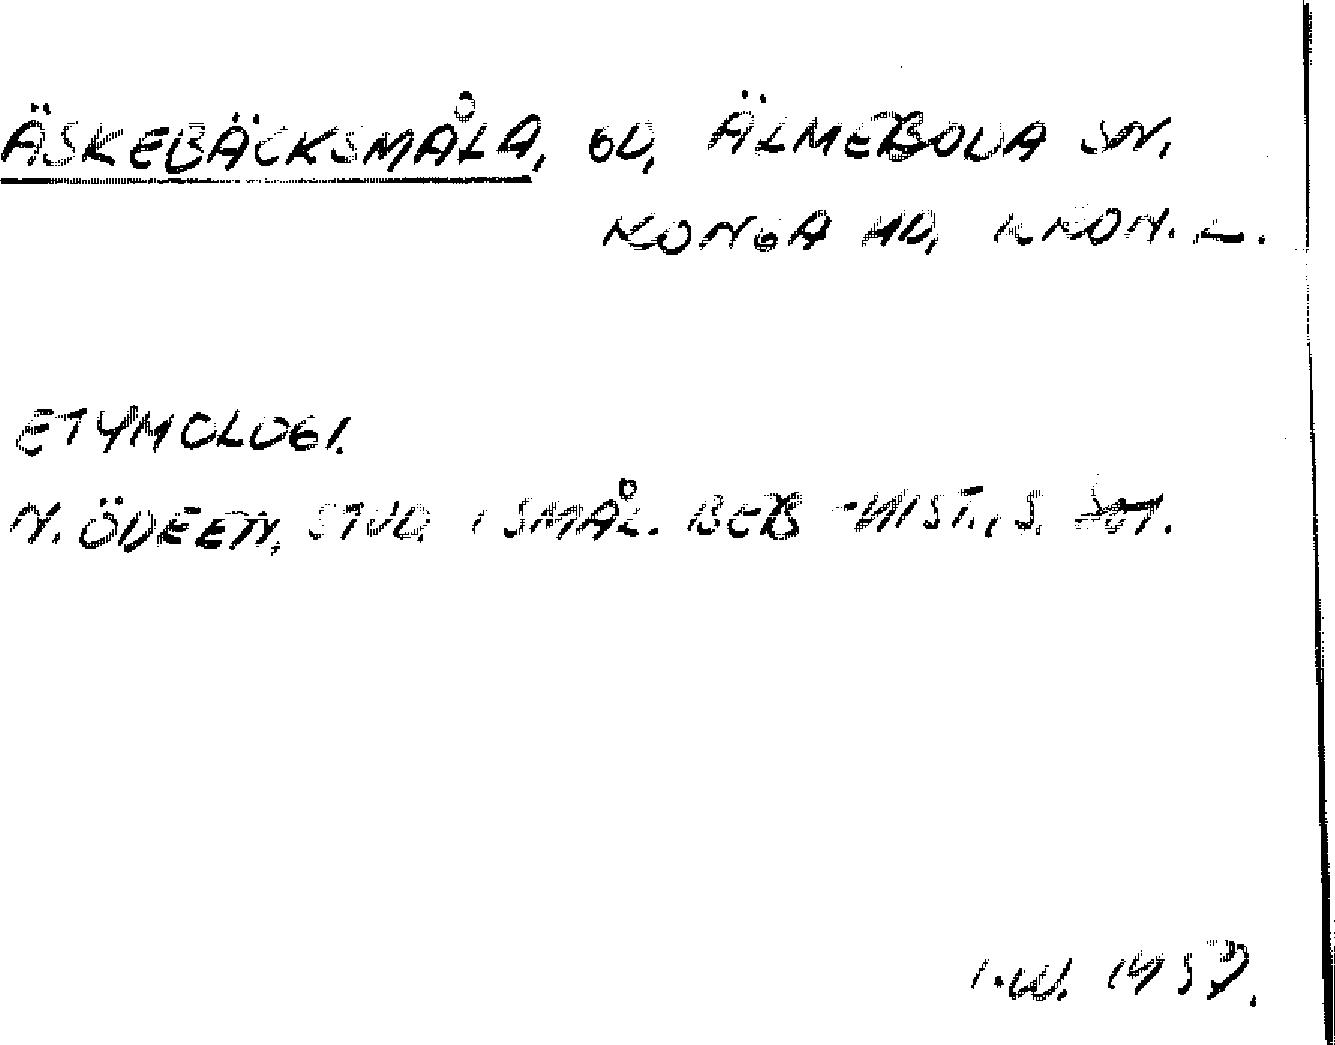 ÄSKEBÄCKSMÅLA, GD, ÄLMEBODA SN,
KONGA HD, KRON. L.
ETYMOLOGI.
N. ÖDEEN, STUD. I SMÅL. BEB-HIST., S.
I.W. 1957.